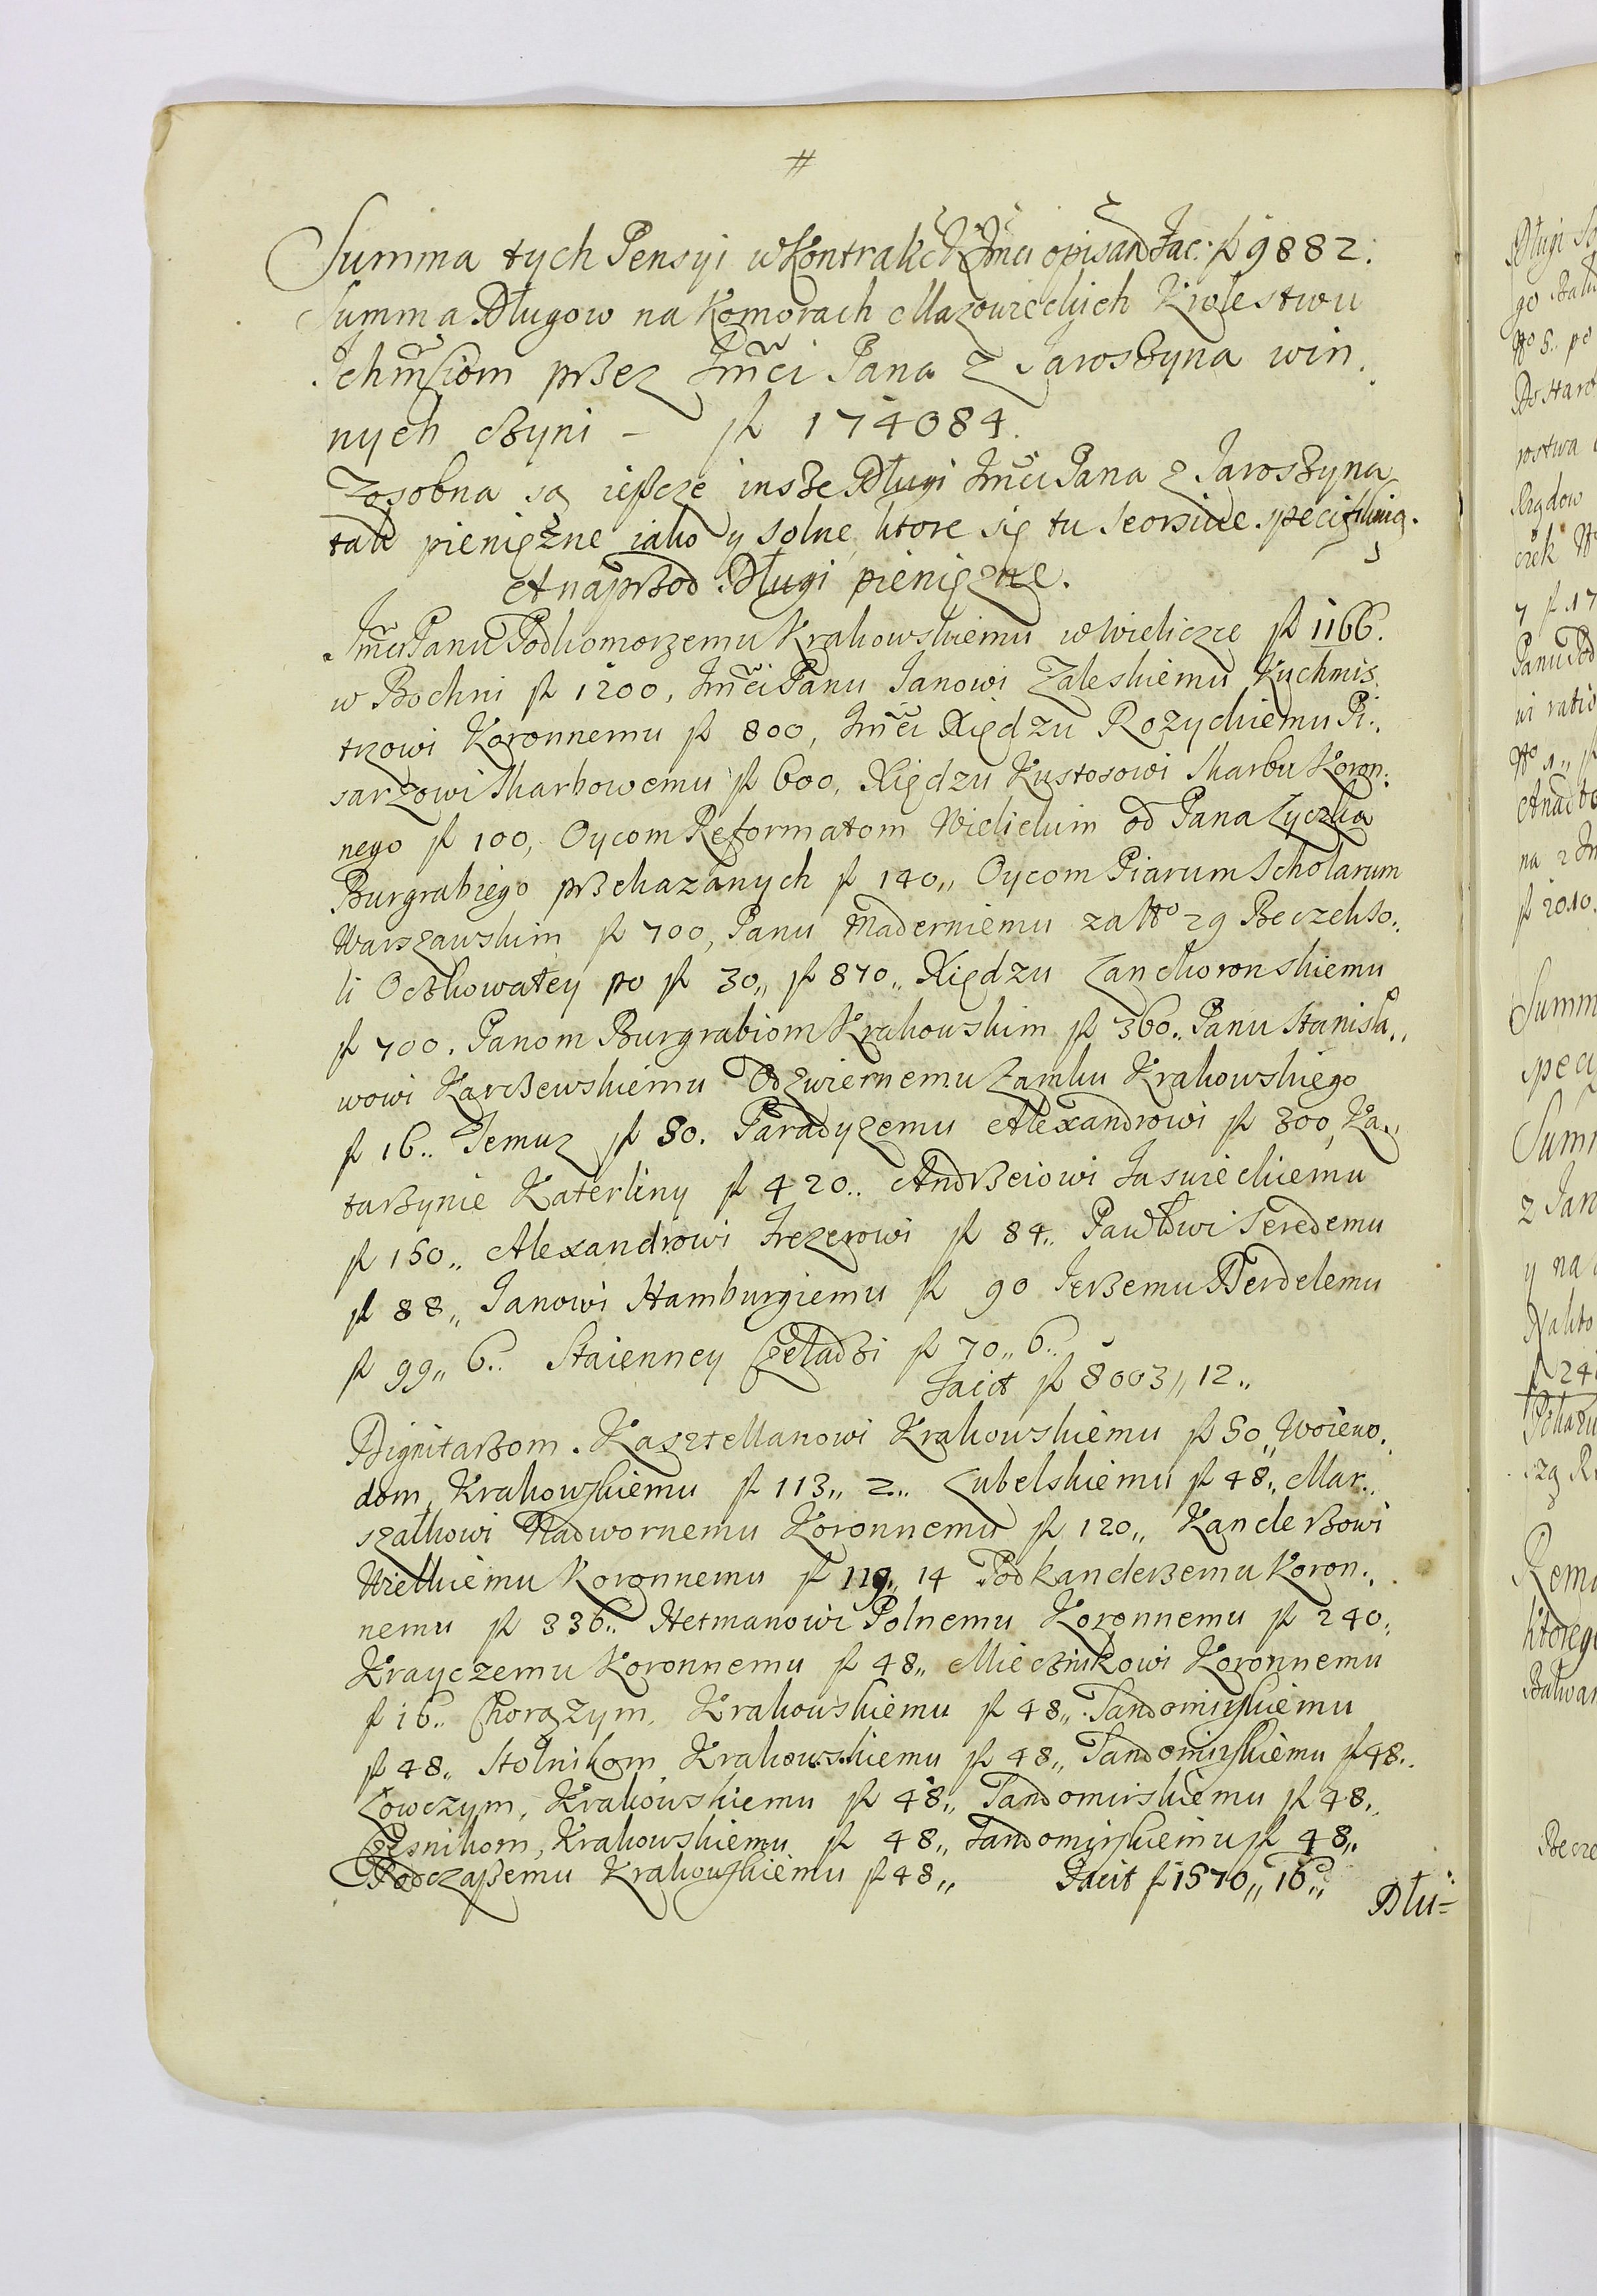 #
Summa tych Pensyi w Kontrakcie Jmci opisan. Fac: fl 9882.
Summa Długow na Komorach Mazowieckich Krolestwu
Ichmsciom przez Jmci Pana z Jaroszyna win,
nych czyni – fl 174084.
Zosobna są ieszcze insze Długi Jmci Pana z Jaroszyna
tak pieniężne iako y solne, ktore się tu seorsive specifikuią.
A naprzod Długi pieniężne.
Jmci Panu Podkomorzemu Krakowskiemu w Wieliczce fl 1166.
w Bochni fl 1200, Jmci Panu Janowi Zaleskiemu Kuchmis,
trzowi Koronnemu fl 800, Jmci Xiędzu Rozyckiemu Pi,
sarzowi Skarbowemu fl 600, Xiędzu Kustosowi Skarbu Koron,
nego fl 100, Oycom Reformatom Wielickim od Pana Zyczka
Burgrabiego przekazanych fl 140,, Oycom Piarum Scholarum
Warszawskim fl 700, Panu Maderniemu za No 29 Beczek so,
li Oczkowatey po fl 30,, fl 870,, Xiędzu Zanckoronskiemu
fl 700. Panom Burgrabiom Krakowskim fl 360,, Panu Stanisła,,
wowi Karczewskiemu Odzwiernemu Zamku Krakowskiego
fl 16.. Temuz fl 80. Paradyzemu Alexandrowi fl 300, Ka,,
tarzynie Katerliny fl 420.. Andrzeiowi Jaswieckiemu
fl 150,, Alexandrowi Trezerowi fl 84,, Pawłowi Seredemu
fl 88,, Janowi Hamburgiemu fl 90 Jerzemu Derdelemu
fl 99,, 6.. Staienney Czeladzi fl 70,, 6..
Facit fl 8003,, 12,,
Dignitarzom. Kasztellanowi Krakowskiemu fl 50,, Woiewo,
dom, Krakowskiemu fl 113,, 2.. Lubelskiemu fl 48,, Mar,,
szałkowi Nadwornemu Koronnemu fl 120,, Kanclerzowi
Wielkiemu Koronnemu fl 119,, 14 Podkanclerzemu Koron,,
nemu fl 336.. Hetmanowi Polnemu Koronnemu fl 240,,
Krayczemu Koronnemu fl 48,, Miecznikowi Koronnemu
fl 16.. Chorążym, Krakowskiemu fl 48,, Sandomirskiemu
fl 48,, Stolnikom Krakowskiemu fl 48,, Sandomirskiemu fl 48,,
Łowczym, Krakowskiemu fl 48,, Sandomirskiemu fl 48,,
Czesnikom, Krakowskiemu fl 48,, Sandomirskiemu fl 48,,
Podczaszemu Krakowskiemu fl 48,, Facit fl 1570,, 16,,
Dłu=